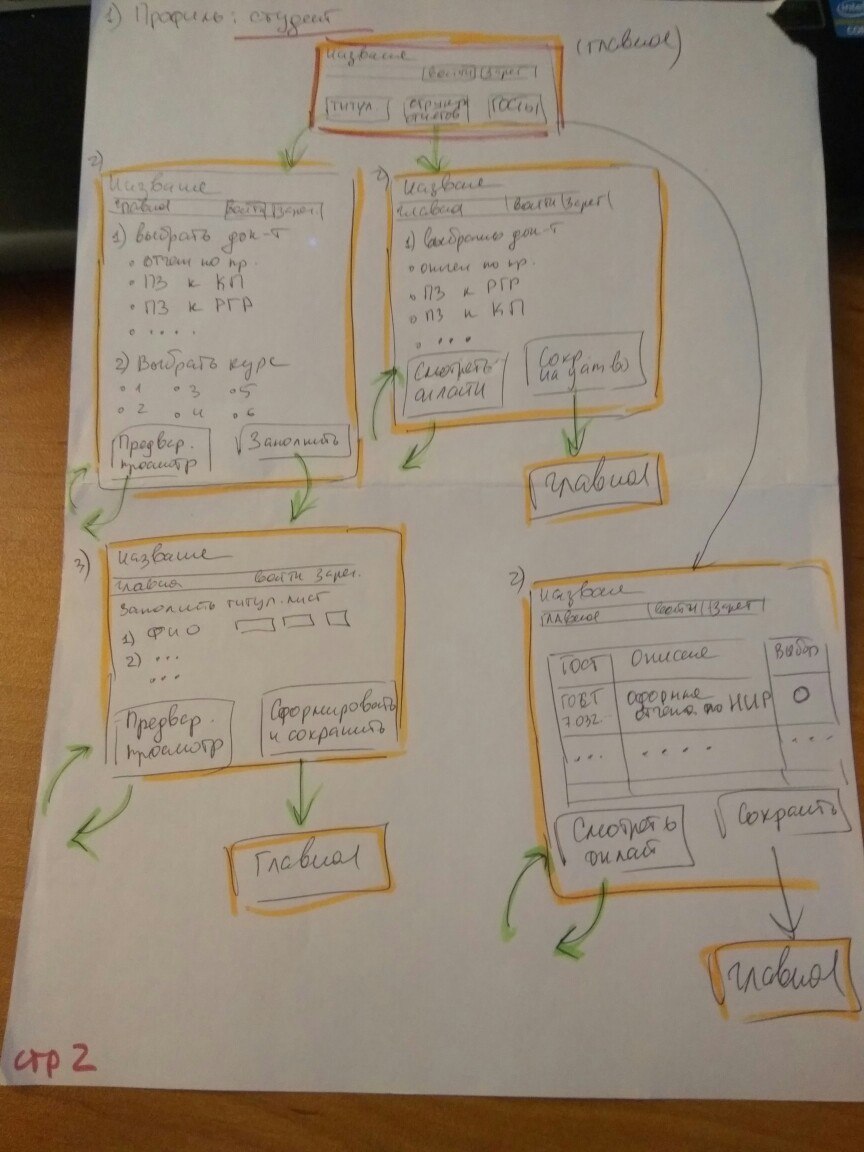 1) Профиль: студент
(главная)
Название
Войти Зарег
титул. структ. отчетов ГОСТы
2)
Название
Главная Войти Зарег.
1) Выбрать док-т
• отчет по пр.
• ПЗ к КП
• ПЗ к РГР
• ....
2) Выбрать курс
• 1 • 3 • 5
• 2 • 4 • 6
Предвар. просмотр
Заполнить
2)
Название
Главная Войти Зарег
1) Выбрать док-т
• отчет по пр.
• ПЗ к РГР
• ПЗ к КП
• ...
Смотреть онлайн
Сохр. на
Главная
3)
Название
Главная Войти Зарег.
Заполнить титул. лист
1) ФИО
2) ...
...
Предвар. просмотр
Сформировать и сохранить
Главная
2)
Название
Главная Войти Зарег
ГОСТ Описание Выбор
ГОСТ 7.032. отчета по НИР О
... .... ...
Смотреть онлайн
Сохранить
Главная
стр 2
intel